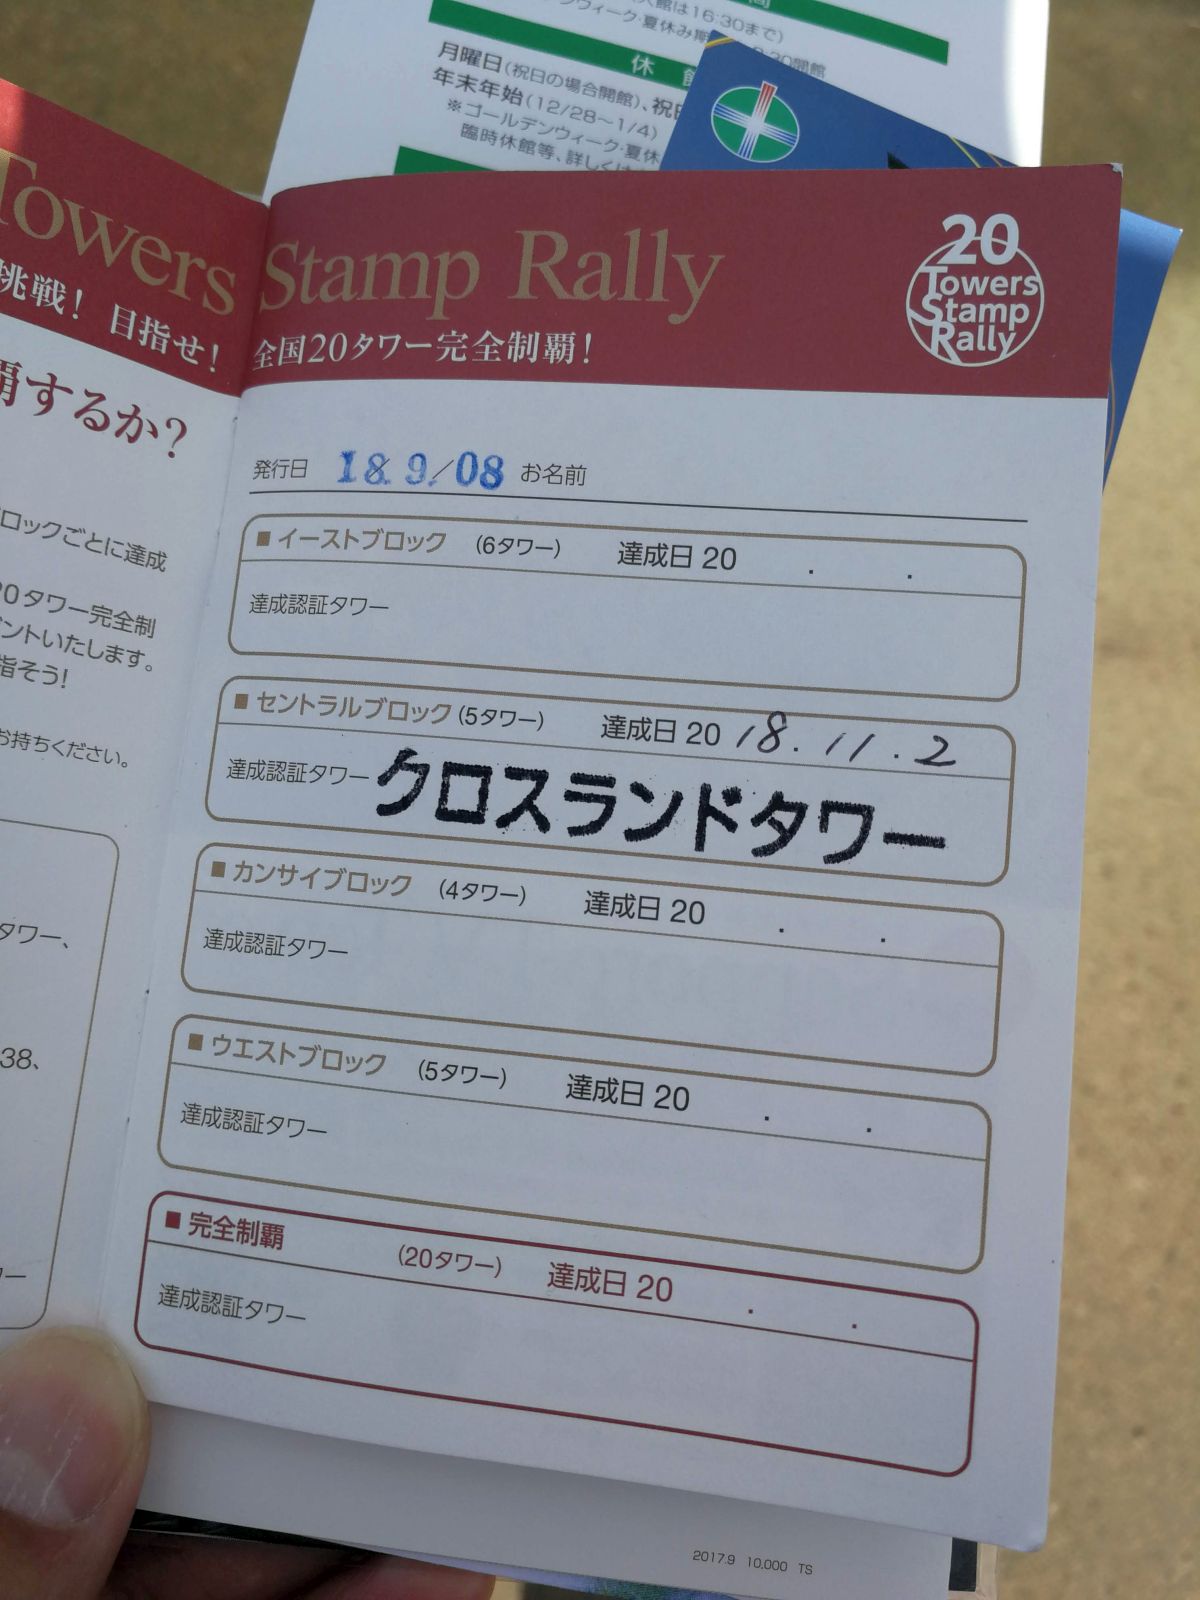 館は16:30まで)
ンウィーク・夏休み期
開館
休
月曜日(祝日の場合開館)、祝日
年末年始(12/28～1/4)
※ゴールデンウィーク・夏休
臨時休館等、詳しくは
Towers Stamp Rally
挑戦! 目指せ!
全国20タワー完全制覇!
20
Towers
Stamp
Rally
覇するか?
ロックごとに達成
20タワー完全制
ントいたします。
指そう!
お持ちください。
タワー、
38、
発行日 18.9/08 お名前
■イーストブロック (6タワー) 達成日 20 . .
達成認証タワー
■セントラルブロック(5タワー) 達成日 20 18.11.2
達成認証タワー クロスランドタワー
■カンサイブロック (4タワー) 達成日 20 . .
達成認証タワー
■ウエストブロック (5タワー) 達成日 20 . .
達成認証タワー
■完全制覇 (20タワー) 達成日 20 . .
達成認証タワー
2017.9 10,000 TS